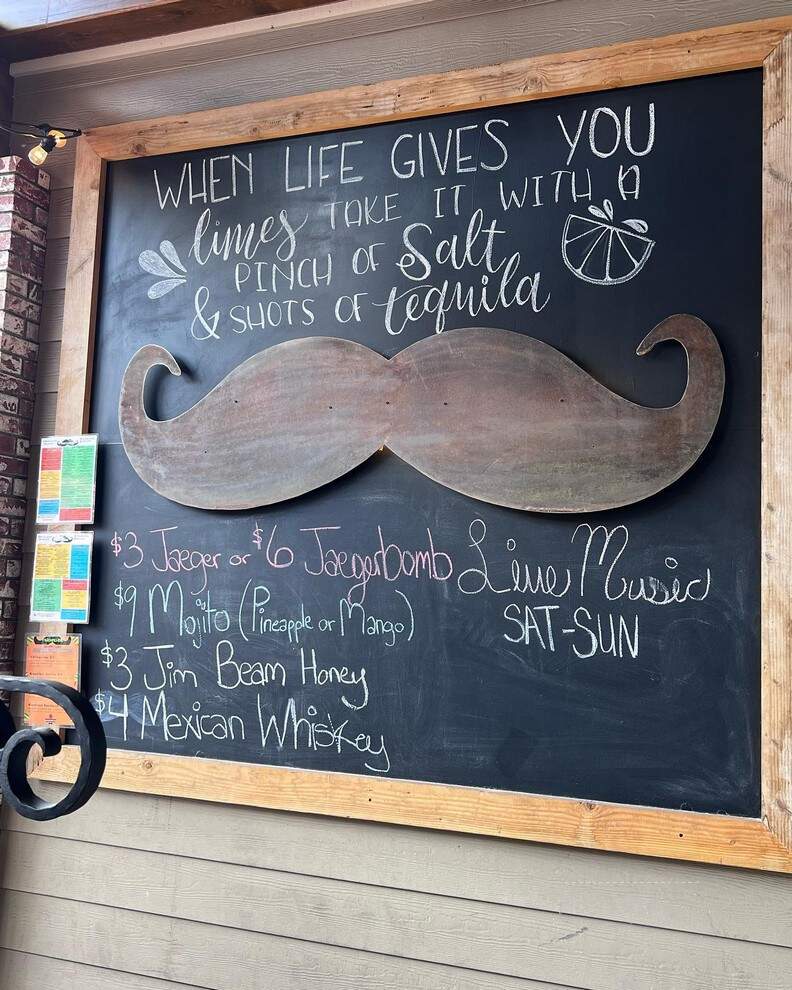 WHEN LIFE GIVES YOU
limes TAKE IT WITH A
PINCH OF Salt
& SHOTS OF tequila
$3 Jaeger or $6 Jaegerbomb
$9 Mojito (Pineapple or Mango)
$3 Jim Beam Honey
$4 Mexican Whiskey
Live Music
SAT-SUN